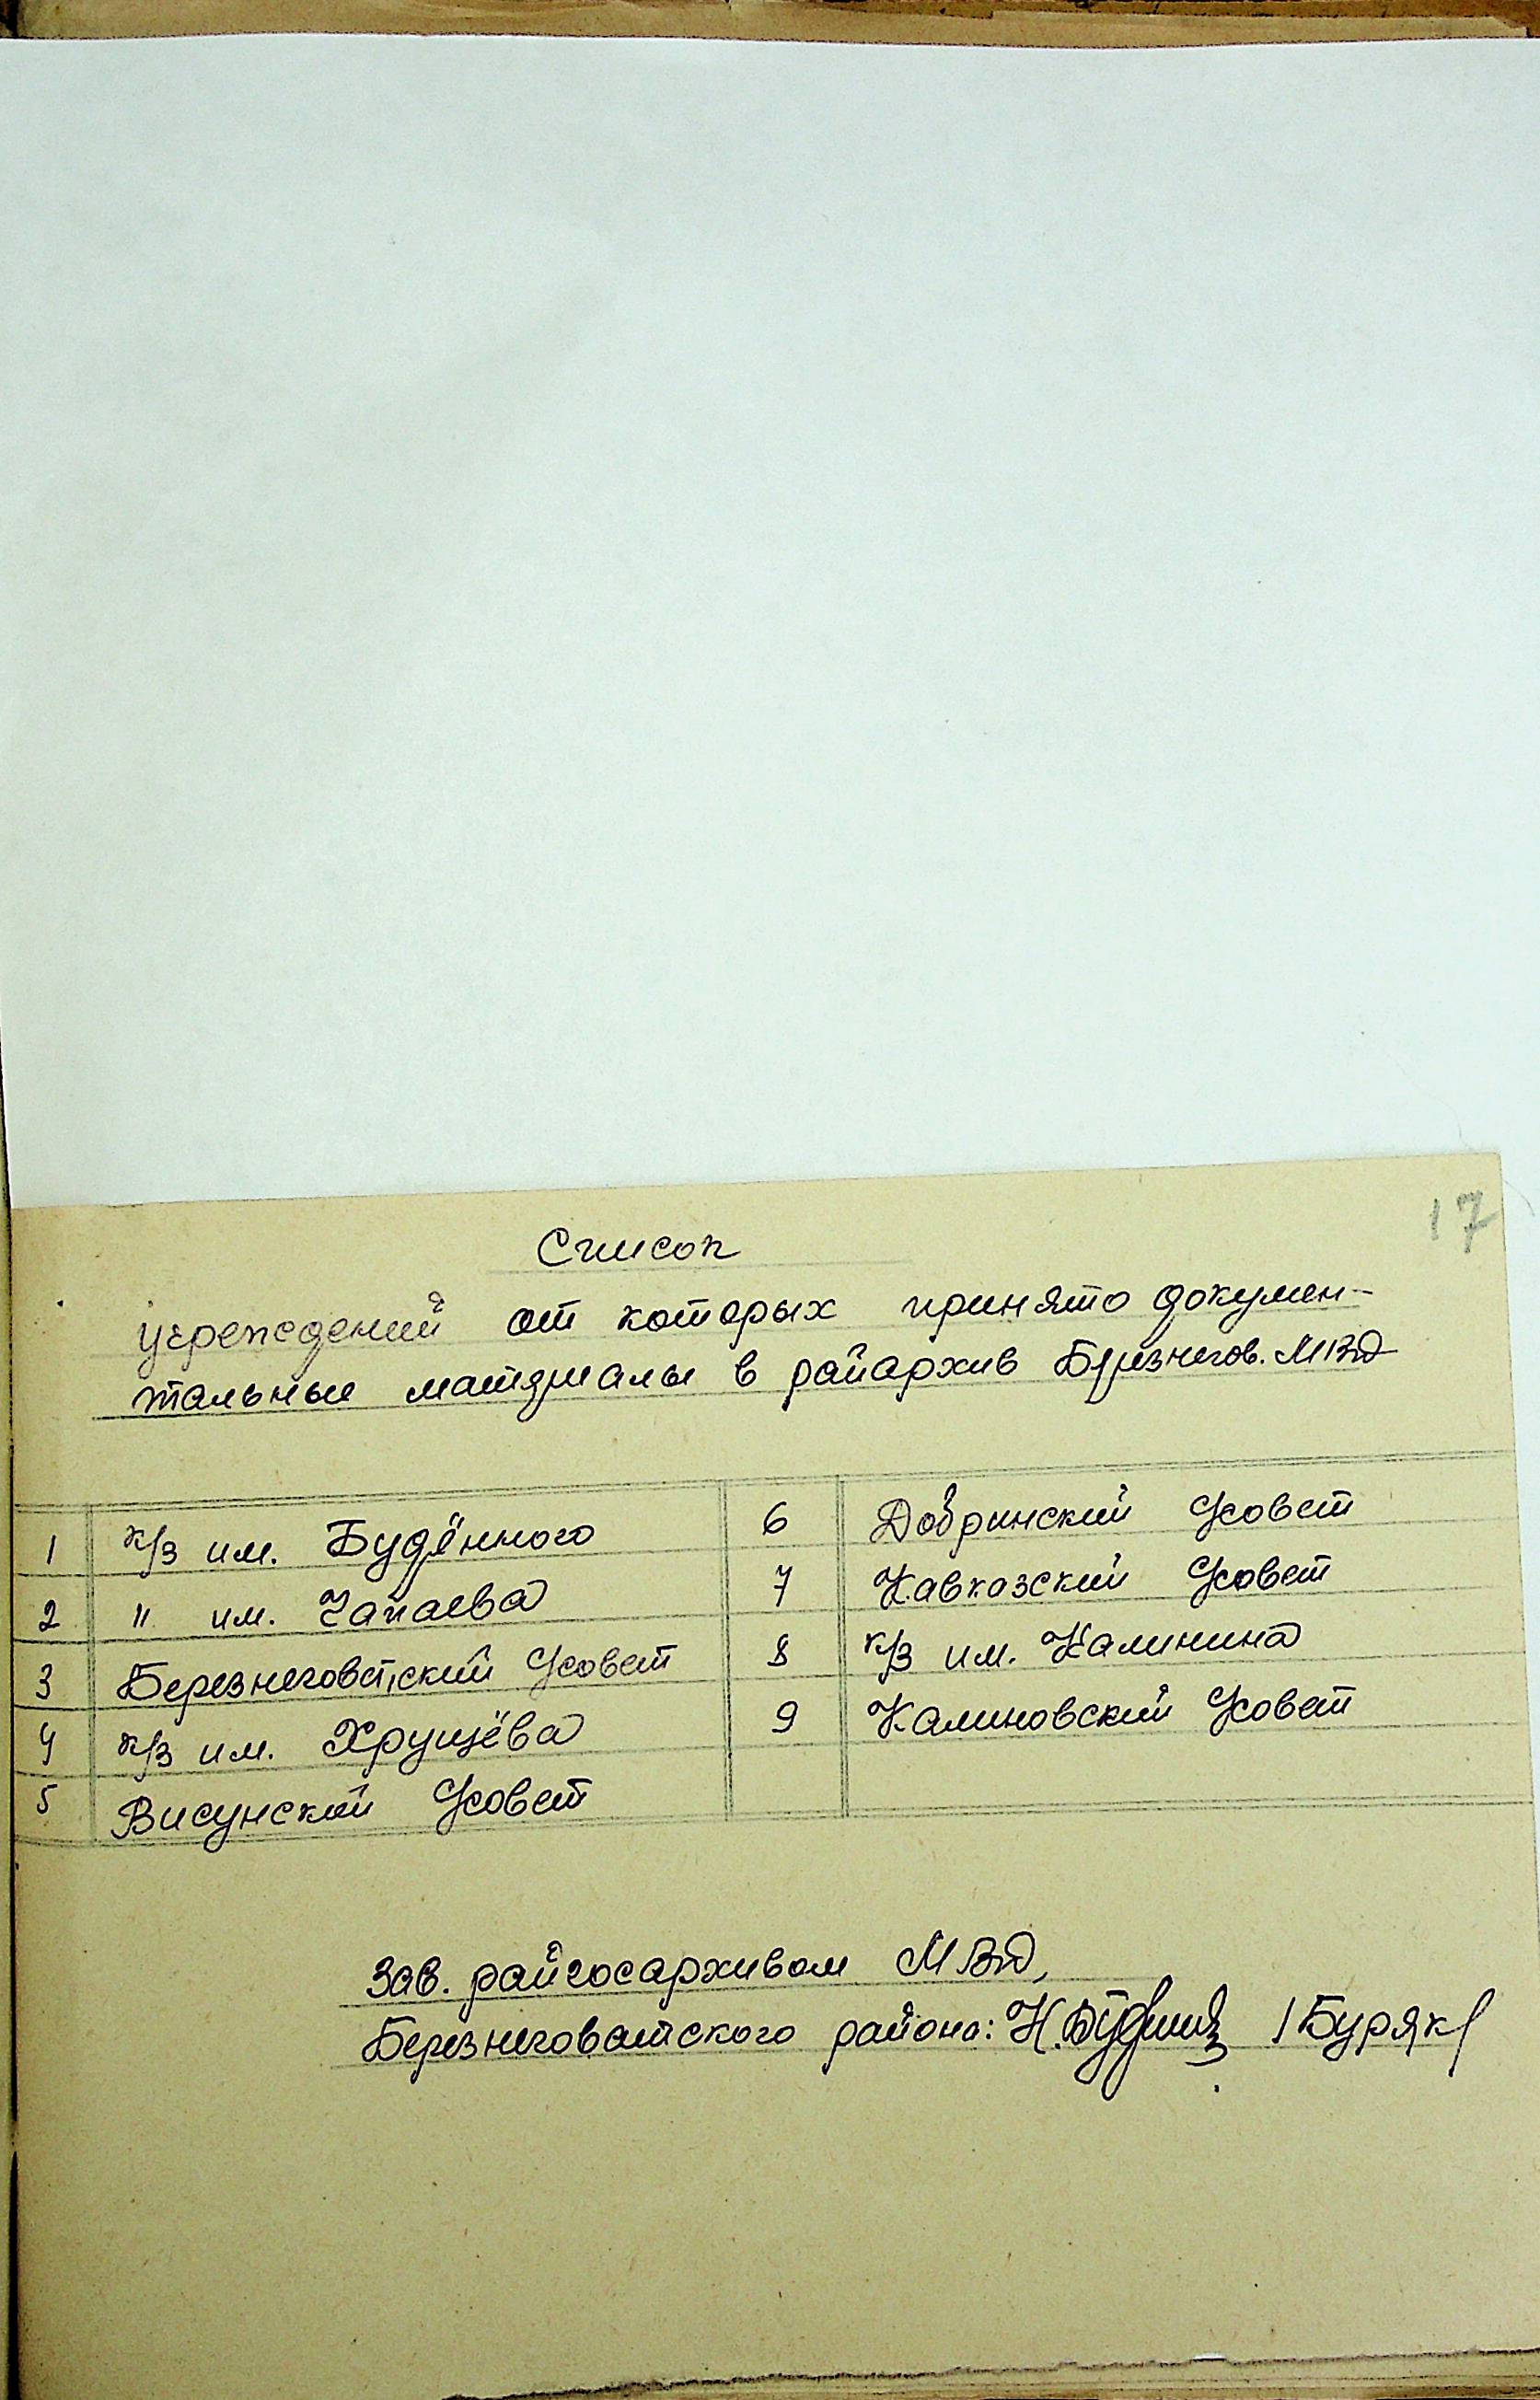 17
Список
учреждений от которых принято докумен-
тальные материалы в райархив Березнегов. МВД
1 к/з им. Будённого
2 " им. Чапаева
3 Березнеговатский С/совет
4 к/з им. Хрущёва
5 Висунский С/совет
6 Добринский С/совет
7 Кавказский С/совет
8 к/з им. Калинина
9 Калиновский С/совет
Зав. райгосархивом МВД,
Березнеговатского района: /Буряк/